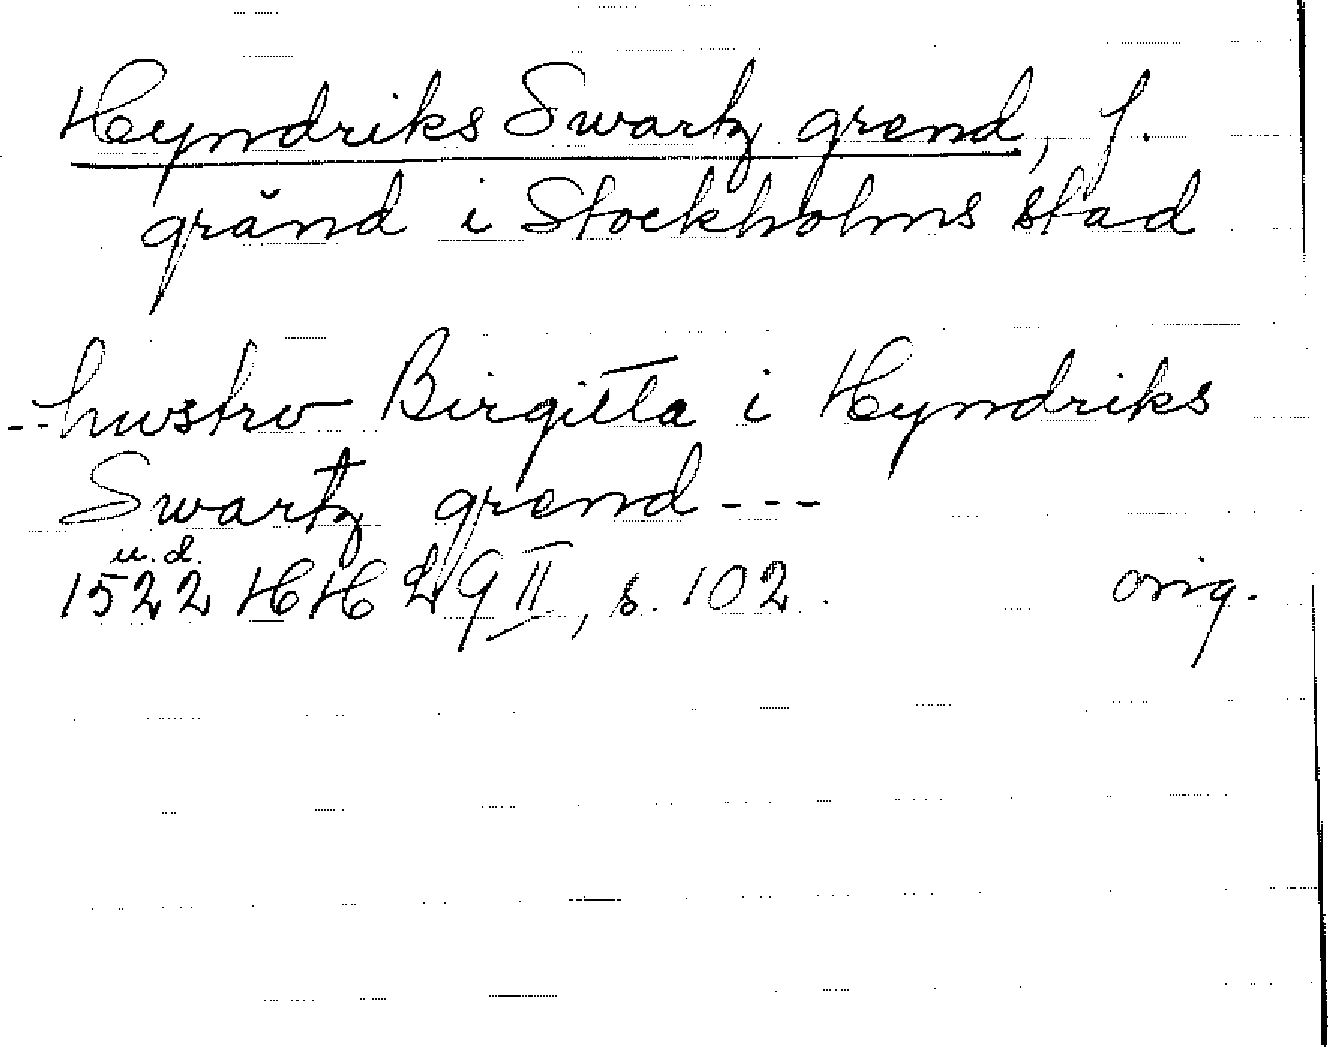 Hyndriks Swartz grend, f.
gränd i Stockholms stad
--hustrv Birgitta i Hyndriks
Swartz grend---
u.d.
1522 HH 29 II, s. 102. orig.